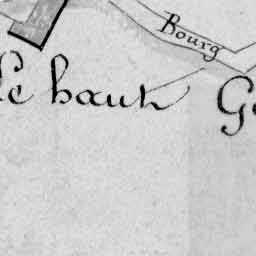 Bourg
le haut Ge